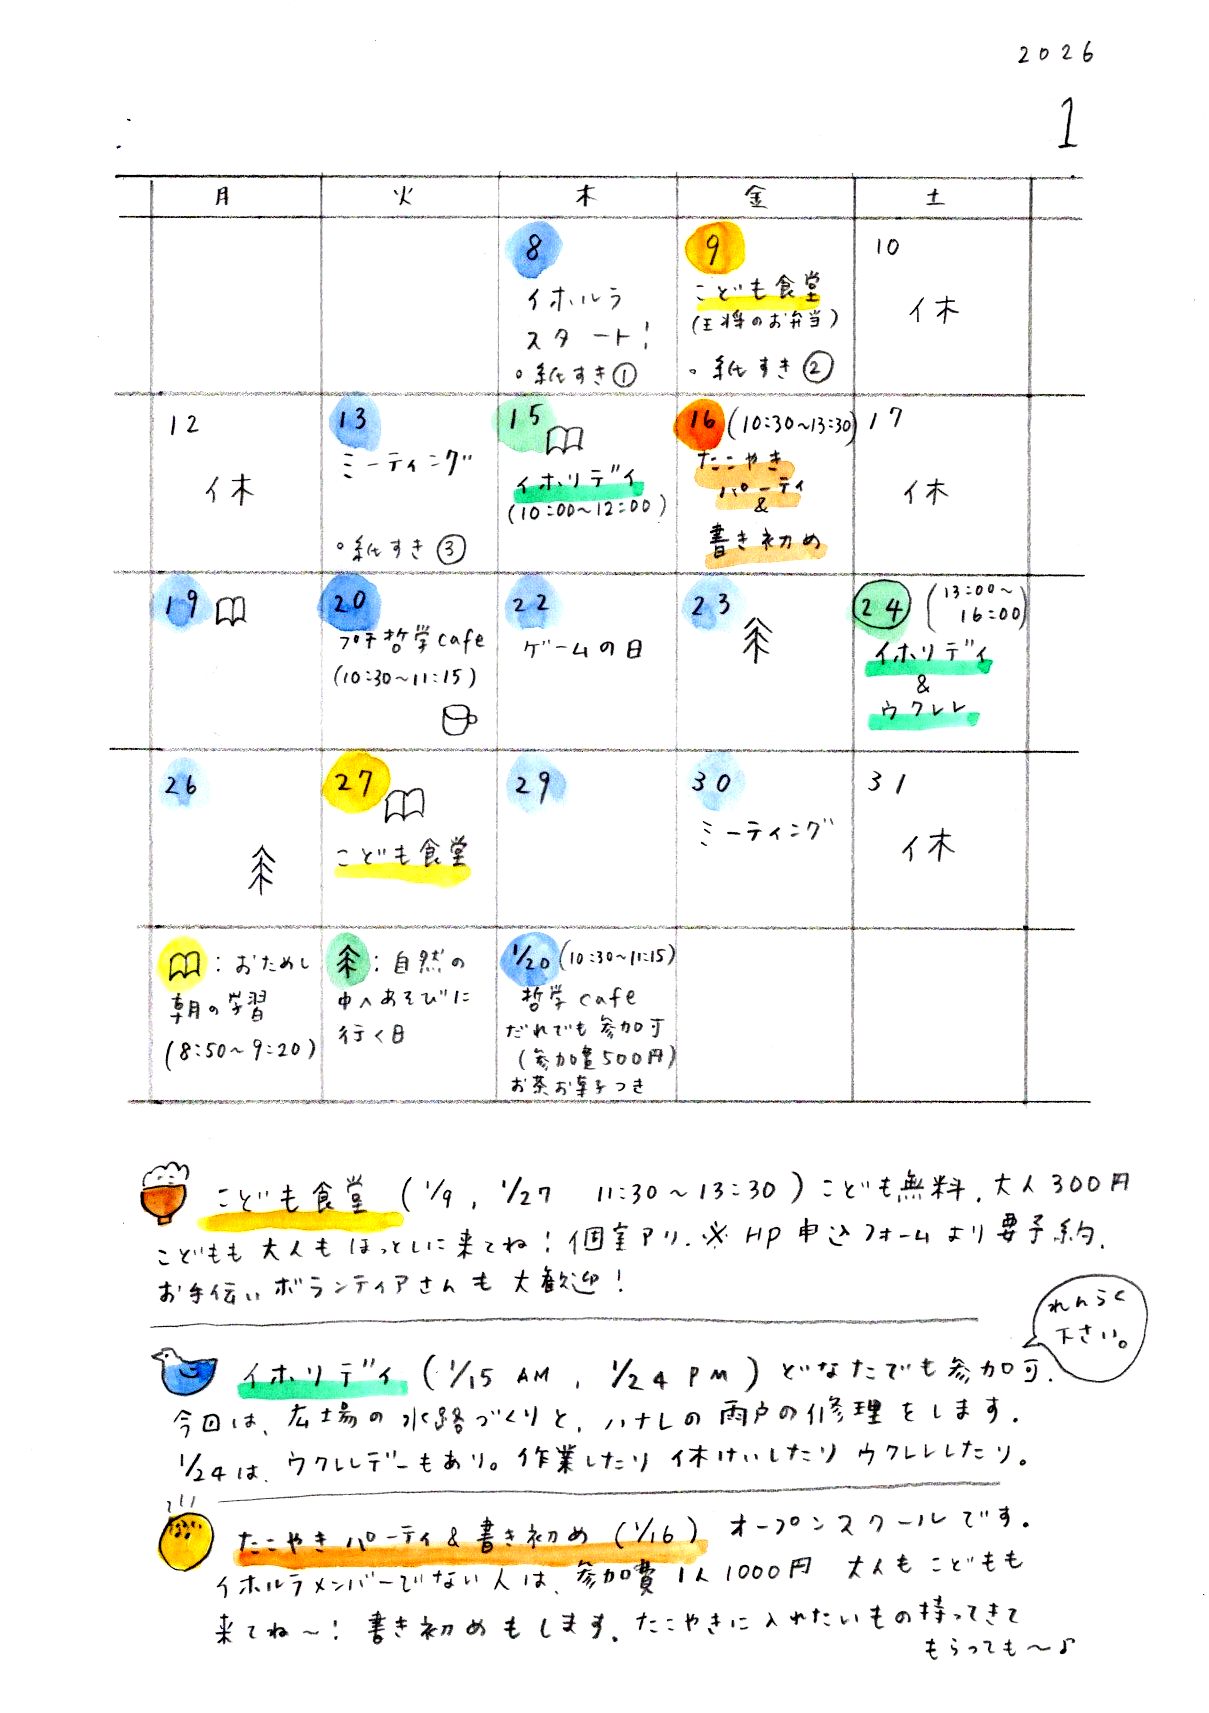 2026
1
月 火 木 金 土
8
イホルラ
スタート!
◦紙すき①
9
こども食堂
(王将のお弁当)
◦紙すき②
10
休
12
休
13
ミーティング
◦紙すき③
15
イホリデイ
(10:00~12:00)
16 (10:30~13:30)
たこやき
パーティ
&
書き初め
17
休
19
20
プチ哲学cafe
(10:30~11:15)
22
ゲームの日
23
24 (13:00~
16:00)
イホリデイ
&
ウクレレ
26
27
こども食堂
29
30
ミーティング
31
休
:おためし
朝の学習
(8:50~9:20)
:自然の
中へあそびに
行く日
1/20 (10:30~11:15)
哲学cafe
だれでも参加可
(参加費500円)
お茶お菓子つき
こども食堂 (1/9, 1/27 11:30~13:30) こども無料、大人300円
こどもも大人もほっとしに来てね!個室アリ.※HP申込フォームより要予約.
お手伝いボランティアさんも大歓迎!
れんらく
下さい。
イホリデイ (1/15 AM, 1/24 PM) どなたでも参加可.
今回は、広場の水路づくりと、ハナレの雨戸の修理をします.
1/24は、ウクレレデーもあり。作業したり休けいしたりウクレレしたり。
たこやきパーティ&書き初め (1/16) オープンスクールです.
イホルラメンバーでない人は、参加費1人1000円 大人もこどもも
来てね~!書き初めもします.たこやきに入れたいもの持ってきて
もらっても~♪